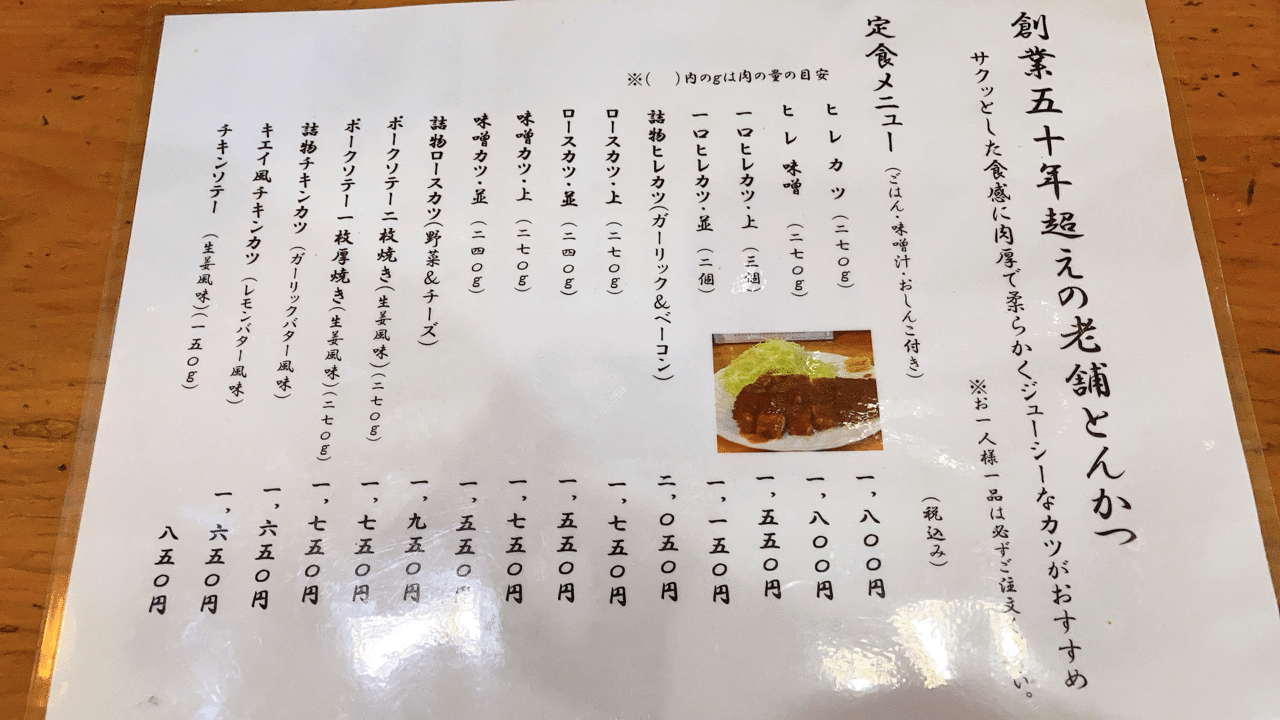 創業五十年超えの老舗とんかつ
サクッとした食感に肉厚で柔らかくジューシーなカツがおすすめ
※お一人様一品は必ずご注文 い。
定食メニュー(ごはん・味噌汁・おしんこ付き) (税込み)
※( )内のgは肉の量の目安
ヒレカツ(二七〇g) 一,八〇〇円
ヒレ味噌(二七〇g) 一,八〇〇円
一口ヒレカツ・上(三個) 一,五五〇円
一口ヒレカツ・並(二個) 一,一五〇円
詰物ヒレカツ(ガーリック&ベーコン) 二,〇五〇円
ロースカツ・上(二七〇g) 一,七五〇円
ロースカツ・並(二四〇g) 一,五五〇円
味噌カツ・上(二七〇g) 一,七五〇円
味噌カツ・並(二四〇g) 一,五五〇円
詰物ロースカツ(野菜&チーズ) 一,九五〇円
ポークソテー二枚焼き(生姜風味)(二七〇g) 一,七五〇円
ポークソテー一枚厚焼き(生姜風味)(二七〇g) 一,七五〇円
詰物チキンカツ(ガーリックバター風味) 一,六五〇円
キエイ風チキンカツ(レモンバター風味) 一,六五〇円
チキンソテー(生姜風味)(一五〇g) 八五〇円